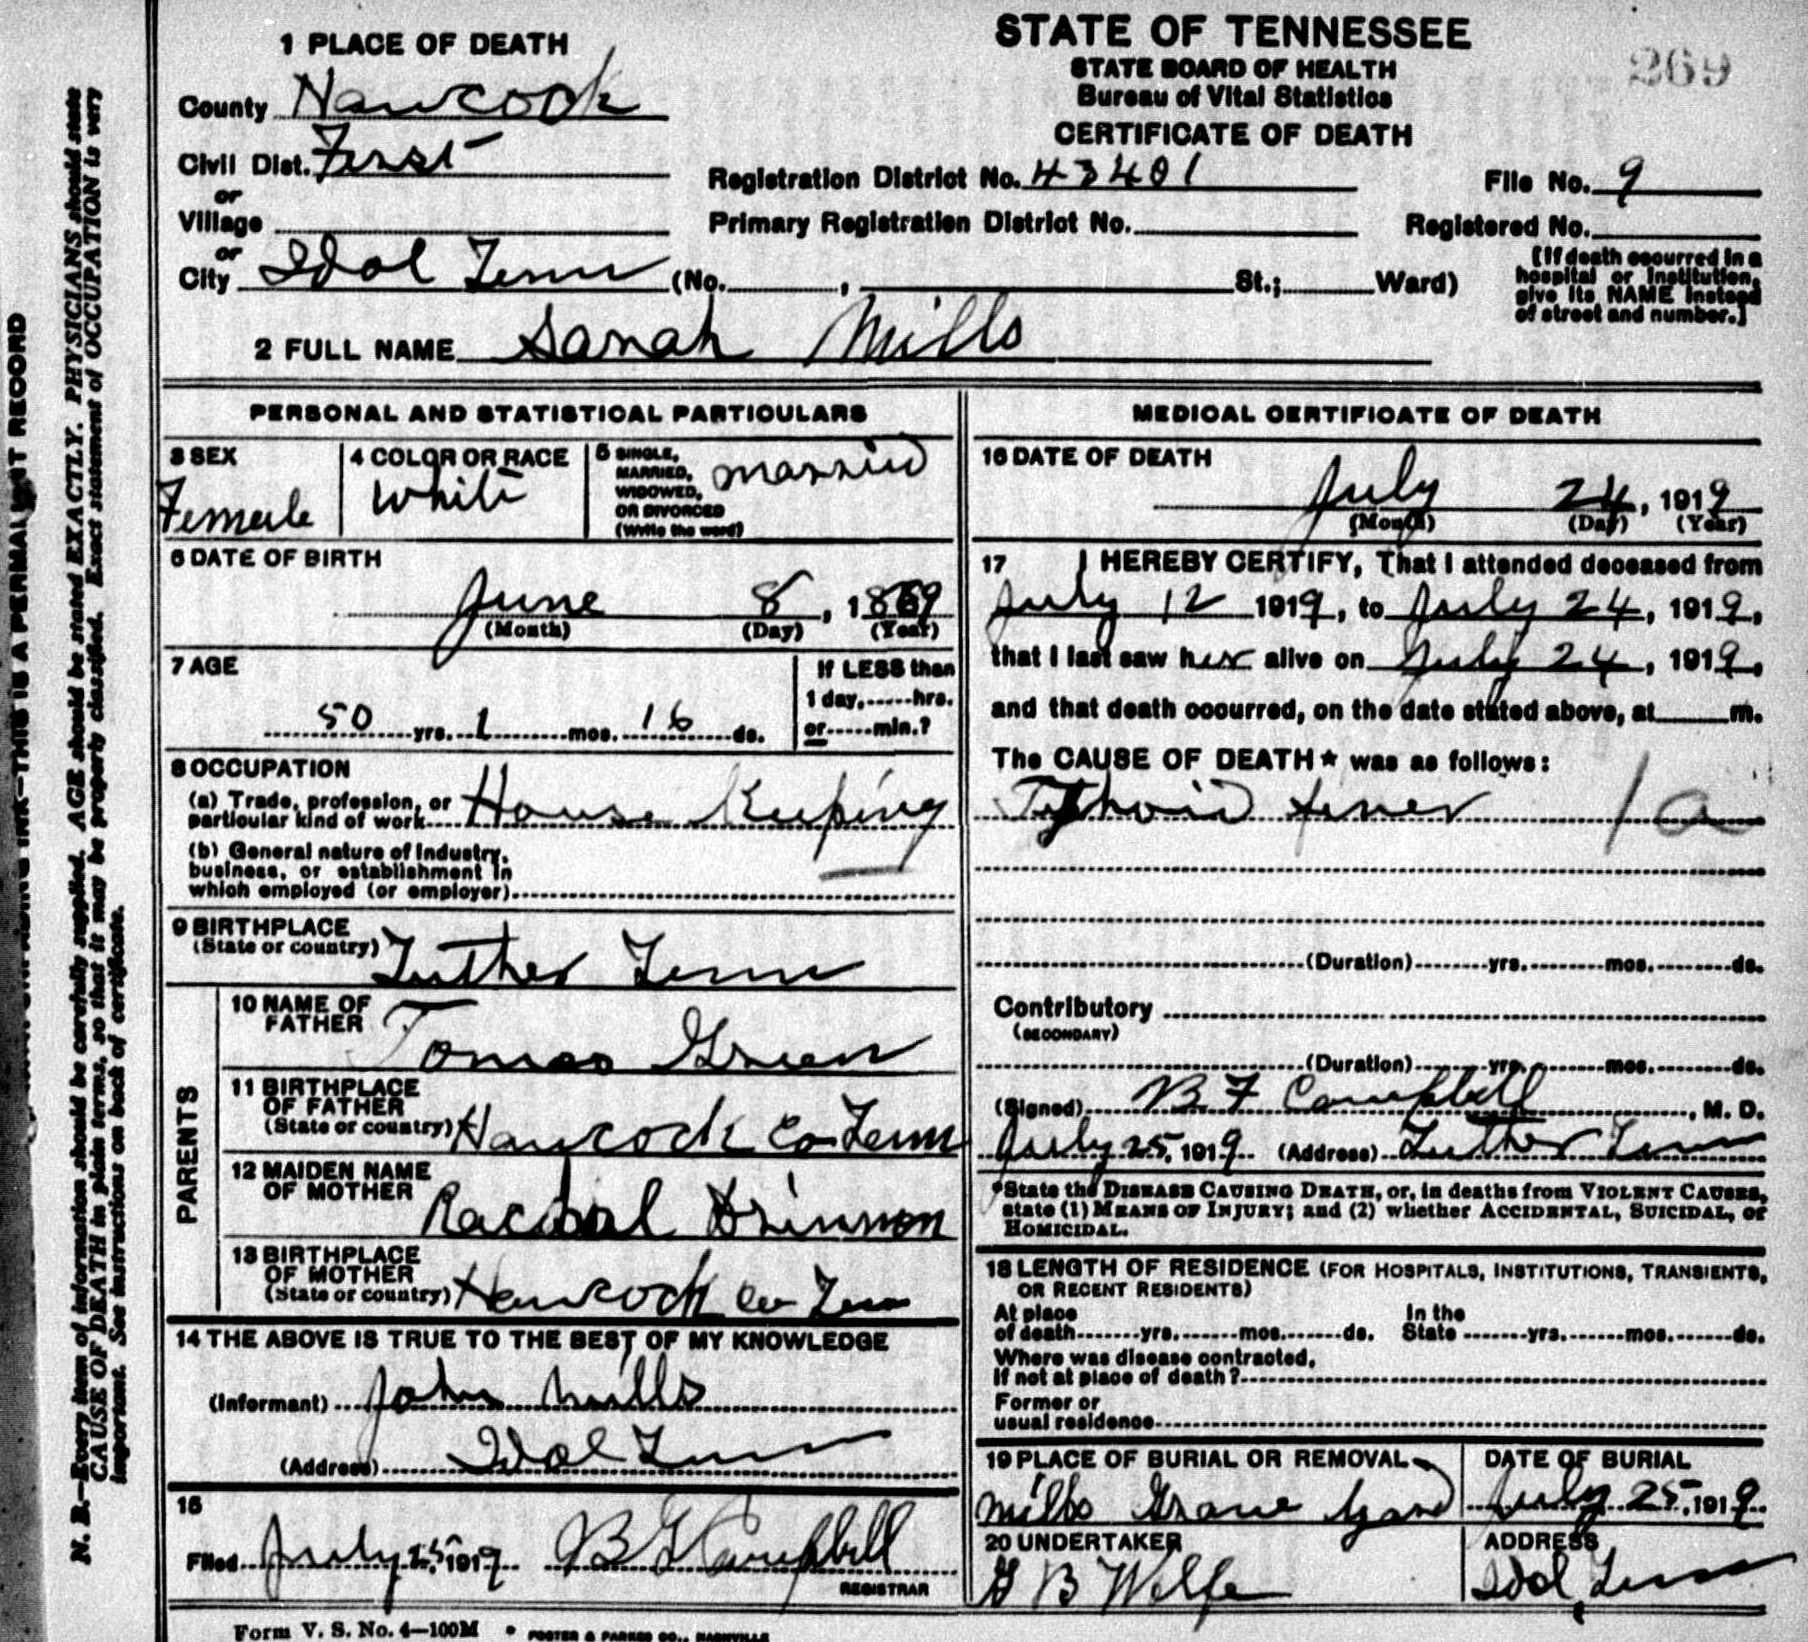 STATE OF TENNESSEE
STATE BOARD OF HEALTH
Bureau of Vital Statistics
CERTIFICATE OF DEATH
269
1 PLACE OF DEATH
County Hancock
Civil Dist. First
or
Village
or
City Idol Tenn (No. , St.; Ward)
Registration District No. 43401 File No. 9
Primary Registration District No. Registered No.
[If death occurred in a
hospital or institution,
give its NAME instead
of street and number.]
2 FULL NAME Sarah Mills
PERSONAL AND STATISTICAL PARTICULARS
3 SEX
Female
4 COLOR OR RACE
White
5 SINGLE,
MARRIED,
WIDOWED,
OR DIVORCED
(Write the word)
married
6 DATE OF BIRTH
June 8, 1869
(Month) (Day) (Year)
7 AGE
50 yrs. 1 mos. 16 ds.
If LESS than
1 day, hrs.
or min.?
8 OCCUPATION
(a) Trade, profession, or
particular kind of work House Keeping
(b) General nature of Industry,
business, or establishment in
which employed (or employer)
9 BIRTHPLACE
(State or country) Luther Tenn
PARENTS
10 NAME OF
FATHER Tomas Green
11 BIRTHPLACE
OF FATHER
(State or country) Hancock Co Tenn
12 MAIDEN NAME
OF MOTHER Rachal
13 BIRTHPLACE
OF MOTHER
(State or country) Hancock Co Tenn
14 THE ABOVE IS TRUE TO THE BEST OF MY KNOWLEDGE
(Informant) John Mills
(Address) Idol Tenn
15
Filed July 25, 1919 B F Campbell
REGISTRAR
MEDICAL CERTIFICATE OF DEATH
16 DATE OF DEATH
July 24, 1919
(Month) (Day) (Year)
17 I HEREBY CERTIFY, That I attended deceased from
July 12 1919, to July 24, 1919,
that I last saw her alive on July 24, 1919,
and that death occurred, on the date stated above, at m.
The CAUSE OF DEATH* was as follows:
Typhoid fever 1a
(Duration) yrs. mos. ds.
Contributory
(SECONDARY)
(Duration) yrs. mos. ds.
(Signed) B F Campbell, M. D.
July 25, 1919 (Address) Luther Tenn
*State the DISEASE CAUSING DEATH, or, in deaths from VIOLENT CAUSES,
state (1) MEANS OF INJURY; and (2) whether ACCIDENTAL, SUICIDAL, or
HOMICIDAL.
18 LENGTH OF RESIDENCE (FOR HOSPITALS, INSTITUTIONS, TRANSIENTS,
OR RECENT RESIDENTS)
At place
of death yrs. mos. ds.
In the
State yrs. mos. ds.
Where was disease contracted,
If not at place of death?
Former or
usual residence
19 PLACE OF BURIAL OR REMOVAL
Mills Grave Yard
DATE OF BURIAL
July 25, 1919
20 UNDERTAKER
G B Wolfe
ADDRESS
Idol, Tenn
Form V. S. No. 4—100M • FOSTER & PARKES CO., NASHVILLE
THIS IS A PERMANENT RECORD
N. B.—Every item of information should be carefully supplied. AGE should be stated EXACTLY. PHYSICIANS should state
CAUSE OF DEATH in plain terms, so that it may be properly classified. Exact statement of OCCUPATION is very
important. See instructions on back of certificate.